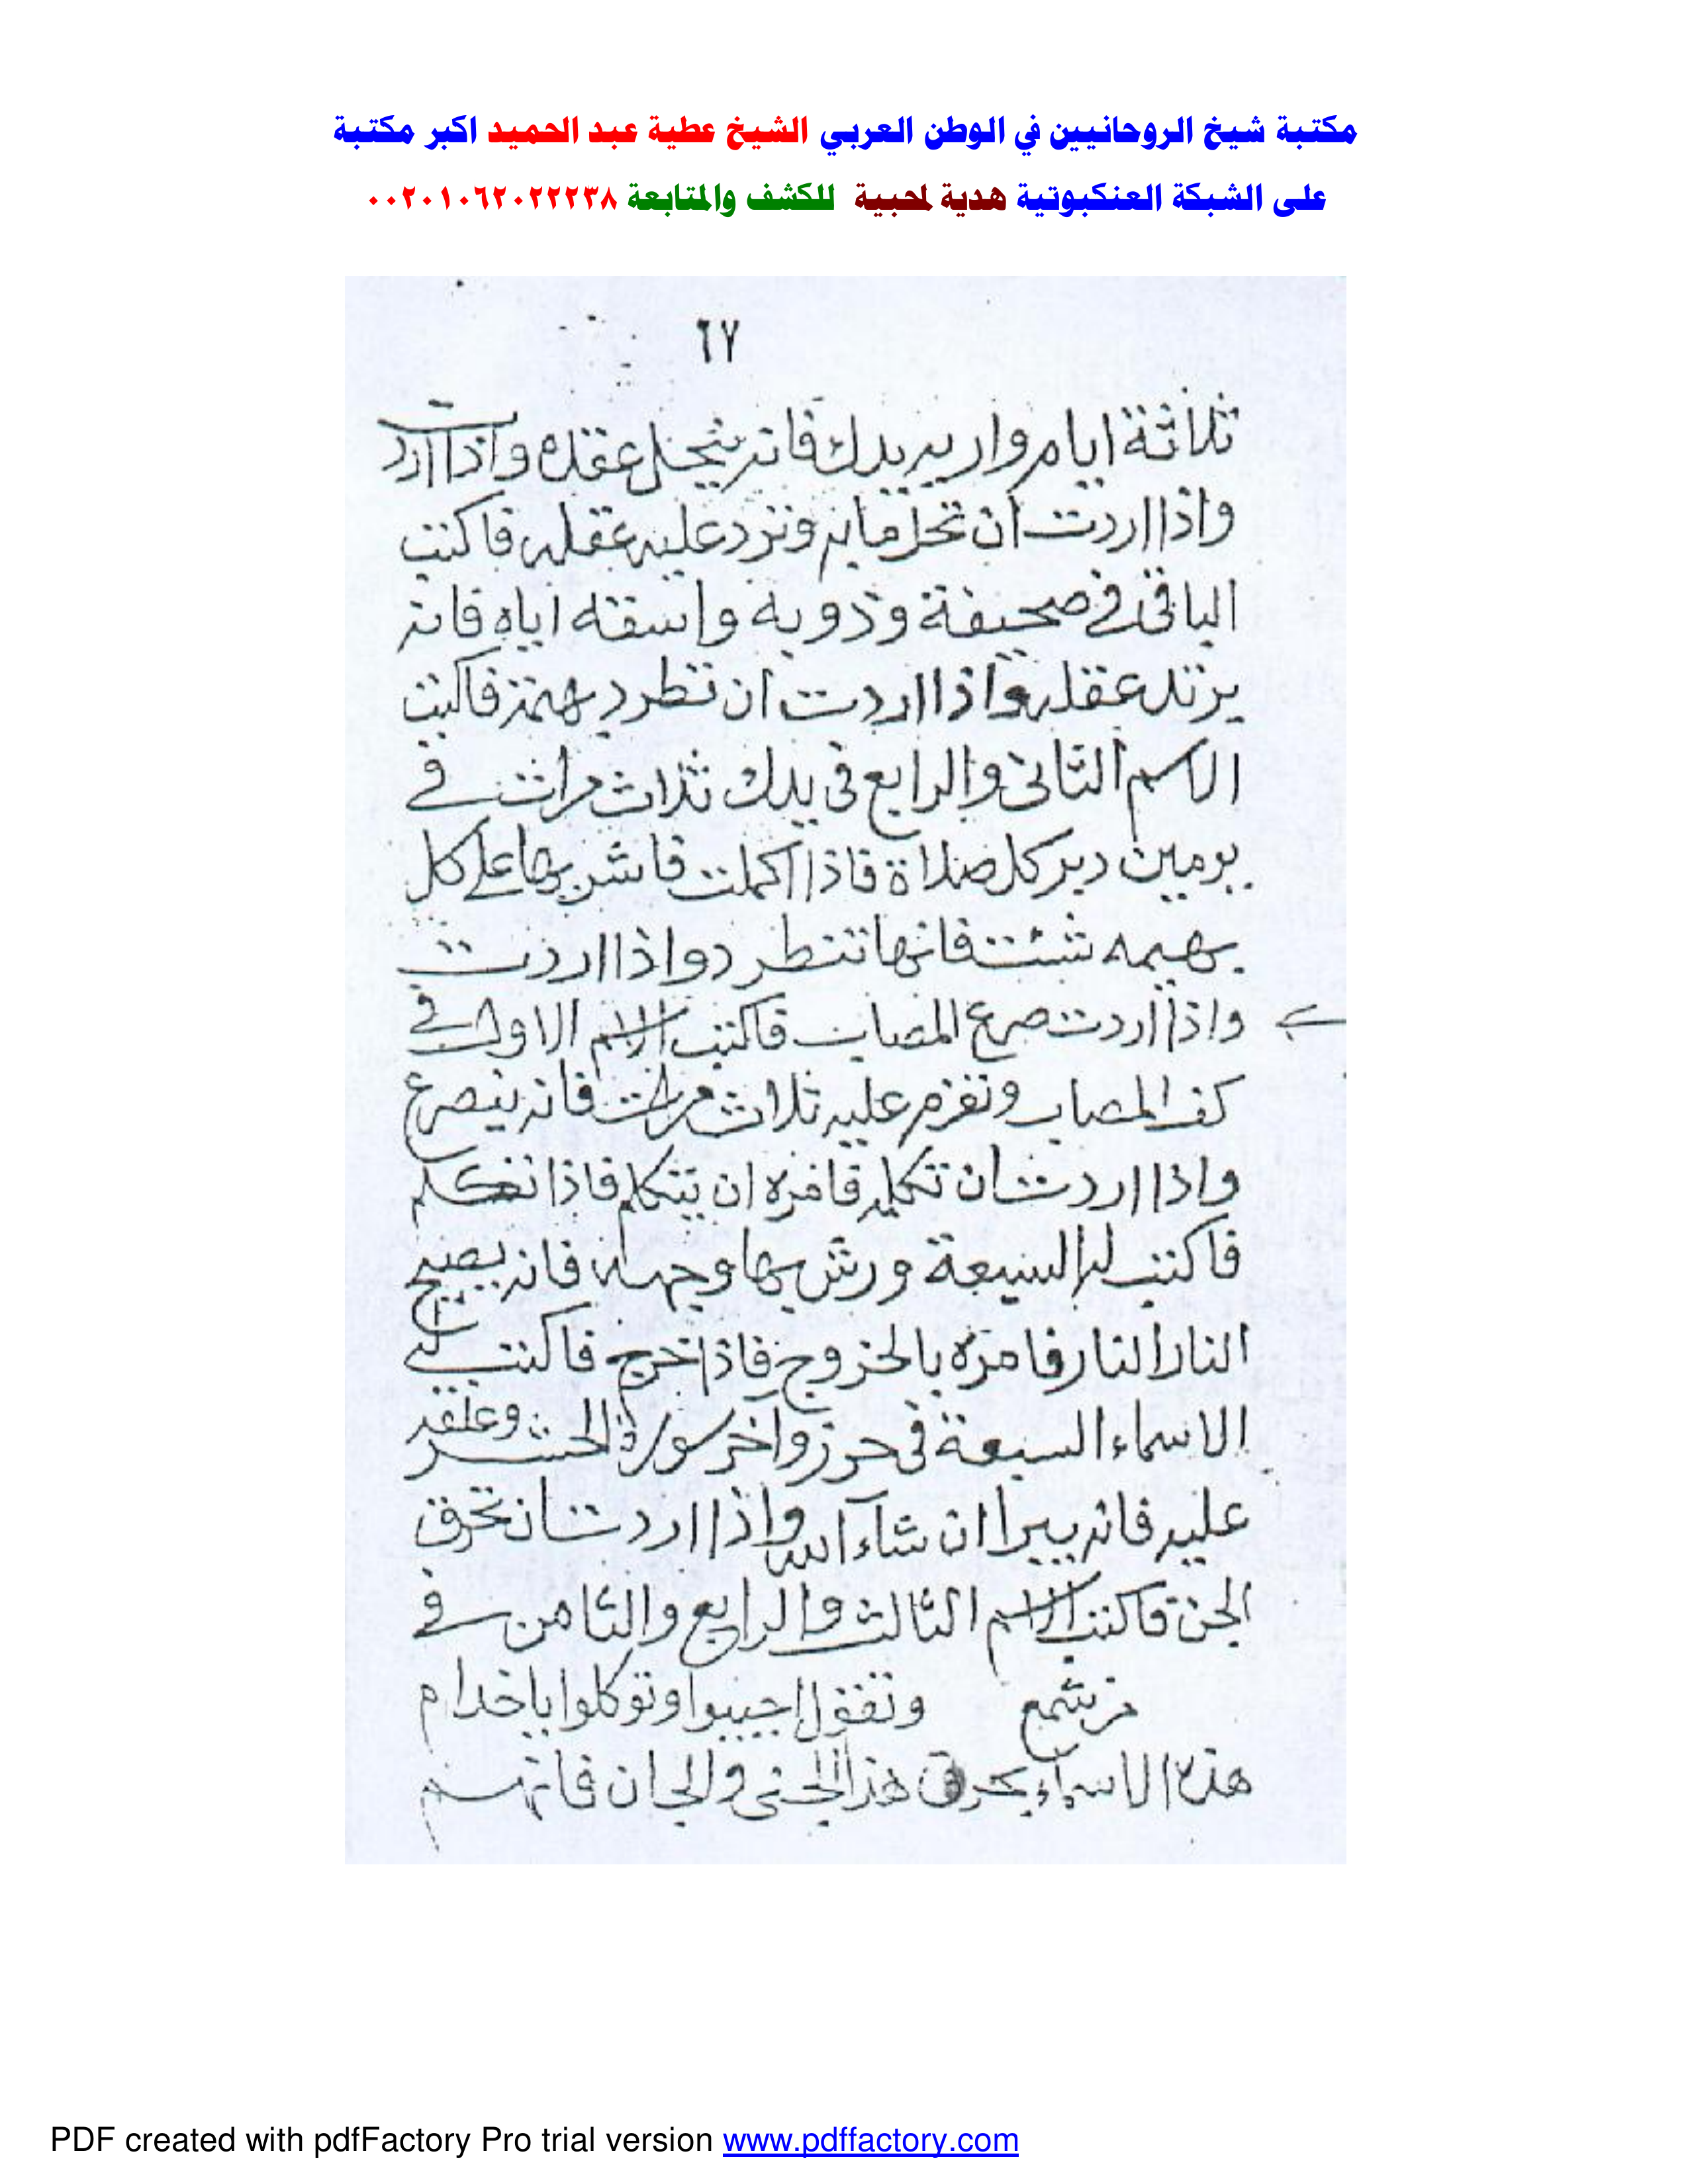 مكتبة شيخ الروحانيين في الوطن العربي الشيخ عطية عبد الحميد اكبر مكتبة
على الشبكة العنكبوتية هدية لمحبية للكشف والمتابعة ٠٠٢٠١٠٦٢٠٢٢٢٣٨
٦٧
ثلاثة ايام واربد يدك فانه عقله واذا اردت
واذا اردت ان تحل مابه وترد عليه عقله فاكتب
الباقى فى صحيفة وذوبه واسقه اياه فانه
يرتد عقله واذا اردت ان تطرد فاكتب
الاسم الثانى والرابع فى يدك ثلاث مرات فى
يومين دبر كل صلاة فاذا اكملت فاشر بها على كل
بهيمه شئت فانها تنطرد واذا اردت
واذا اردت صرع المصاب فاكتب الاسم الاول فى
كف المصاب وتعزم عليه ثلاث مرات فانه ينصرع
واذا اردت ان تكلمه فامره ان يتكلم فاذا تكلم
فاكتب له السبعة ورش بها وجهه فانه يصيح
النار النار فامره بالخروج فاذا خرج فاكتب له
الاسماء السبعة فى حرز واخر سورة الحشر وعلقه
عليه فانه يبرا ان شاء الله واذا اردت ان تحرق
الجن فاكتب الاسم الثالث والرابع والثامن فى
شمع وتقول اجيبوا وتوكلوا ياخدام
هذه الاسماء بحرق هذا الجنى والجان فانهم
PDF created with pdfFactory Pro trial version www.pdffactory.com